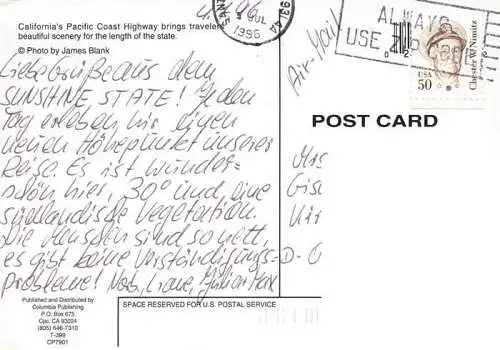 California's Pacific Coast Highway brings travelers
beautiful scenery for the length of the state.
© Photo by James Blank
JUL
1996
ALWAYS
USE ZIP CODE
USA
50
Chester W. Nimitz
Air-Mail
POST CARD
Liebe Grüße aus dem
SUNSHINE STATE! Jeden
Tag erleben wir einen
neuen Höhepunkt unserer
Reise. Es ist wunder-
schön hier, 30° und eine
südländische Vegetation.
Die Menschen sind so nett,
es gibt keine Verständigungs-
probleme!
D-
Published and Distributed by
Columbia Publishing
P.O. Box 675
Ojai, CA 93024
(805) 646-7310
T-399
CP7901
SPACE RESERVED FOR U.S. POSTAL SERVICE